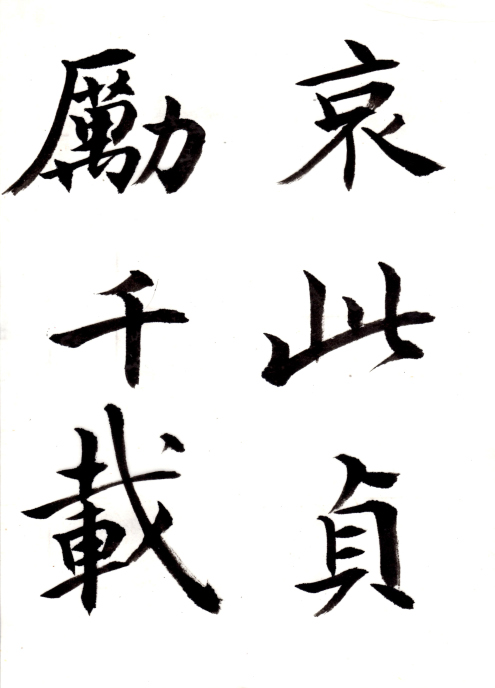 哀此貞
勵千載